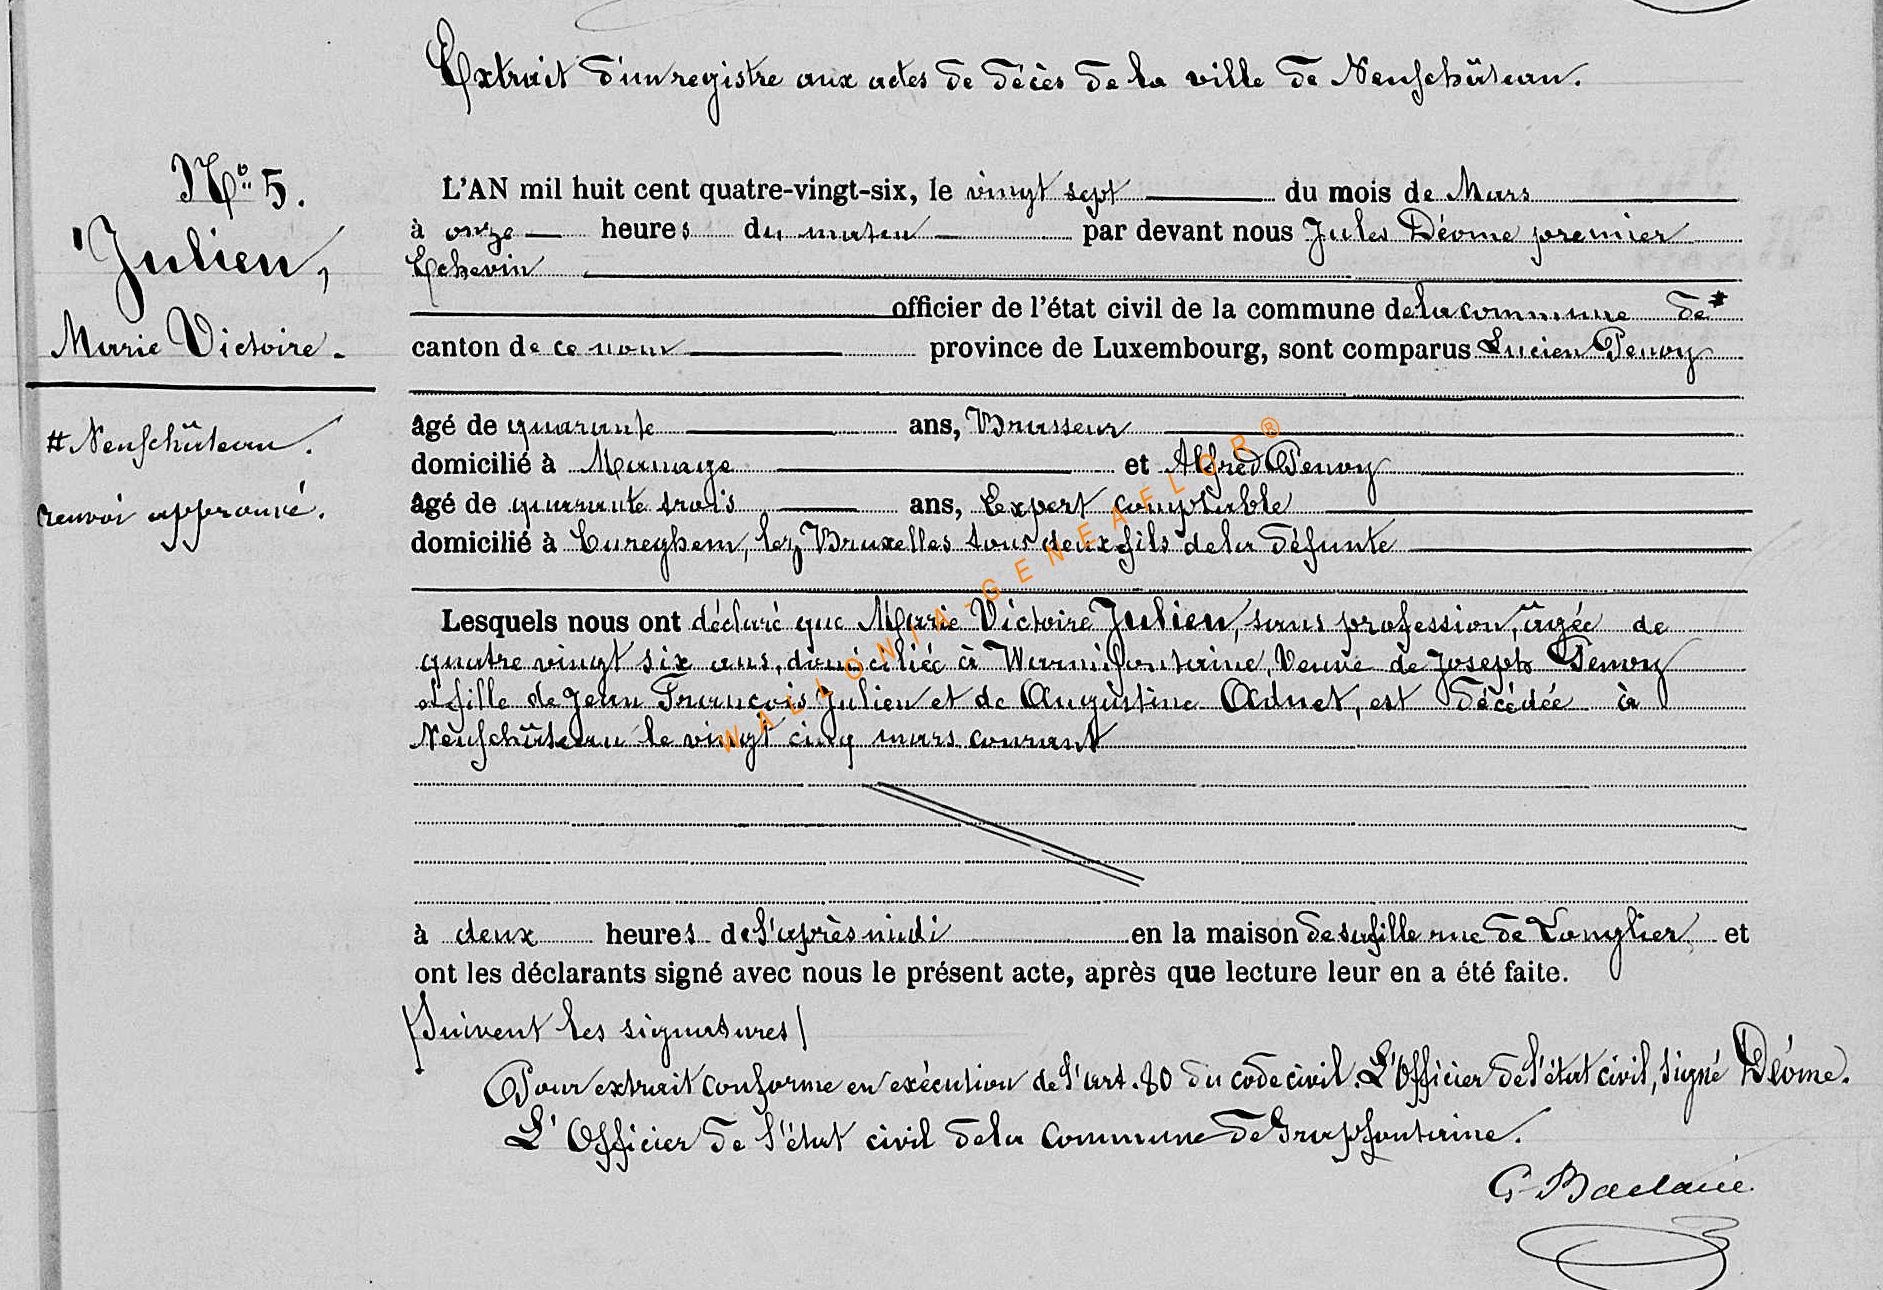 Extrait d'un registre aux actes de décès de la ville de Neufchâteau.
No 5.
Julien,
Marie Victoire.
# Neufchâteau.
renvoi approuvé.
L'AN mil huit cent quatre-vingt-six, le vingt sept du mois de Mars
à onze heures du matin par devant nous Jules Déome premier
Echevin
officier de l'état civil de la commune de la commune de #
canton de ce nom province de Luxembourg, sont comparus Lucien Penoy
âgé de quarante ans, Brasseur
domicilié à Manage et Alfred Penoy
âgé de quarante trois ans, Expert comptable
domicilié à Cureghem, lez Bruxelles tous deux fils de la défunte
Lesquels nous ont déclaré que Marie Victoire Julien, sans profession, âgée de
quatre vingt six ans, domiciliée à Warmifontaine, Veuve de Joseph Penoy
et fille de Jean François Julien et de Augustine Adnet, est décédée à
Neufchâteau le vingt cinq mars courant
à deux heures de l'après midi en la maison de sa fille rue de Longlier et
ont les déclarants signé avec nous le présent acte, après que lecture leur en a été faite.
(Suivent les signatures)
Pour extrait conforme en exécution de l'art. 80 du code civil. L'Officier de l'état civil, signé Déome.
L'Officier de l'état civil de la commune de Grapfontaine.
WALLONIA-GENEALOR®